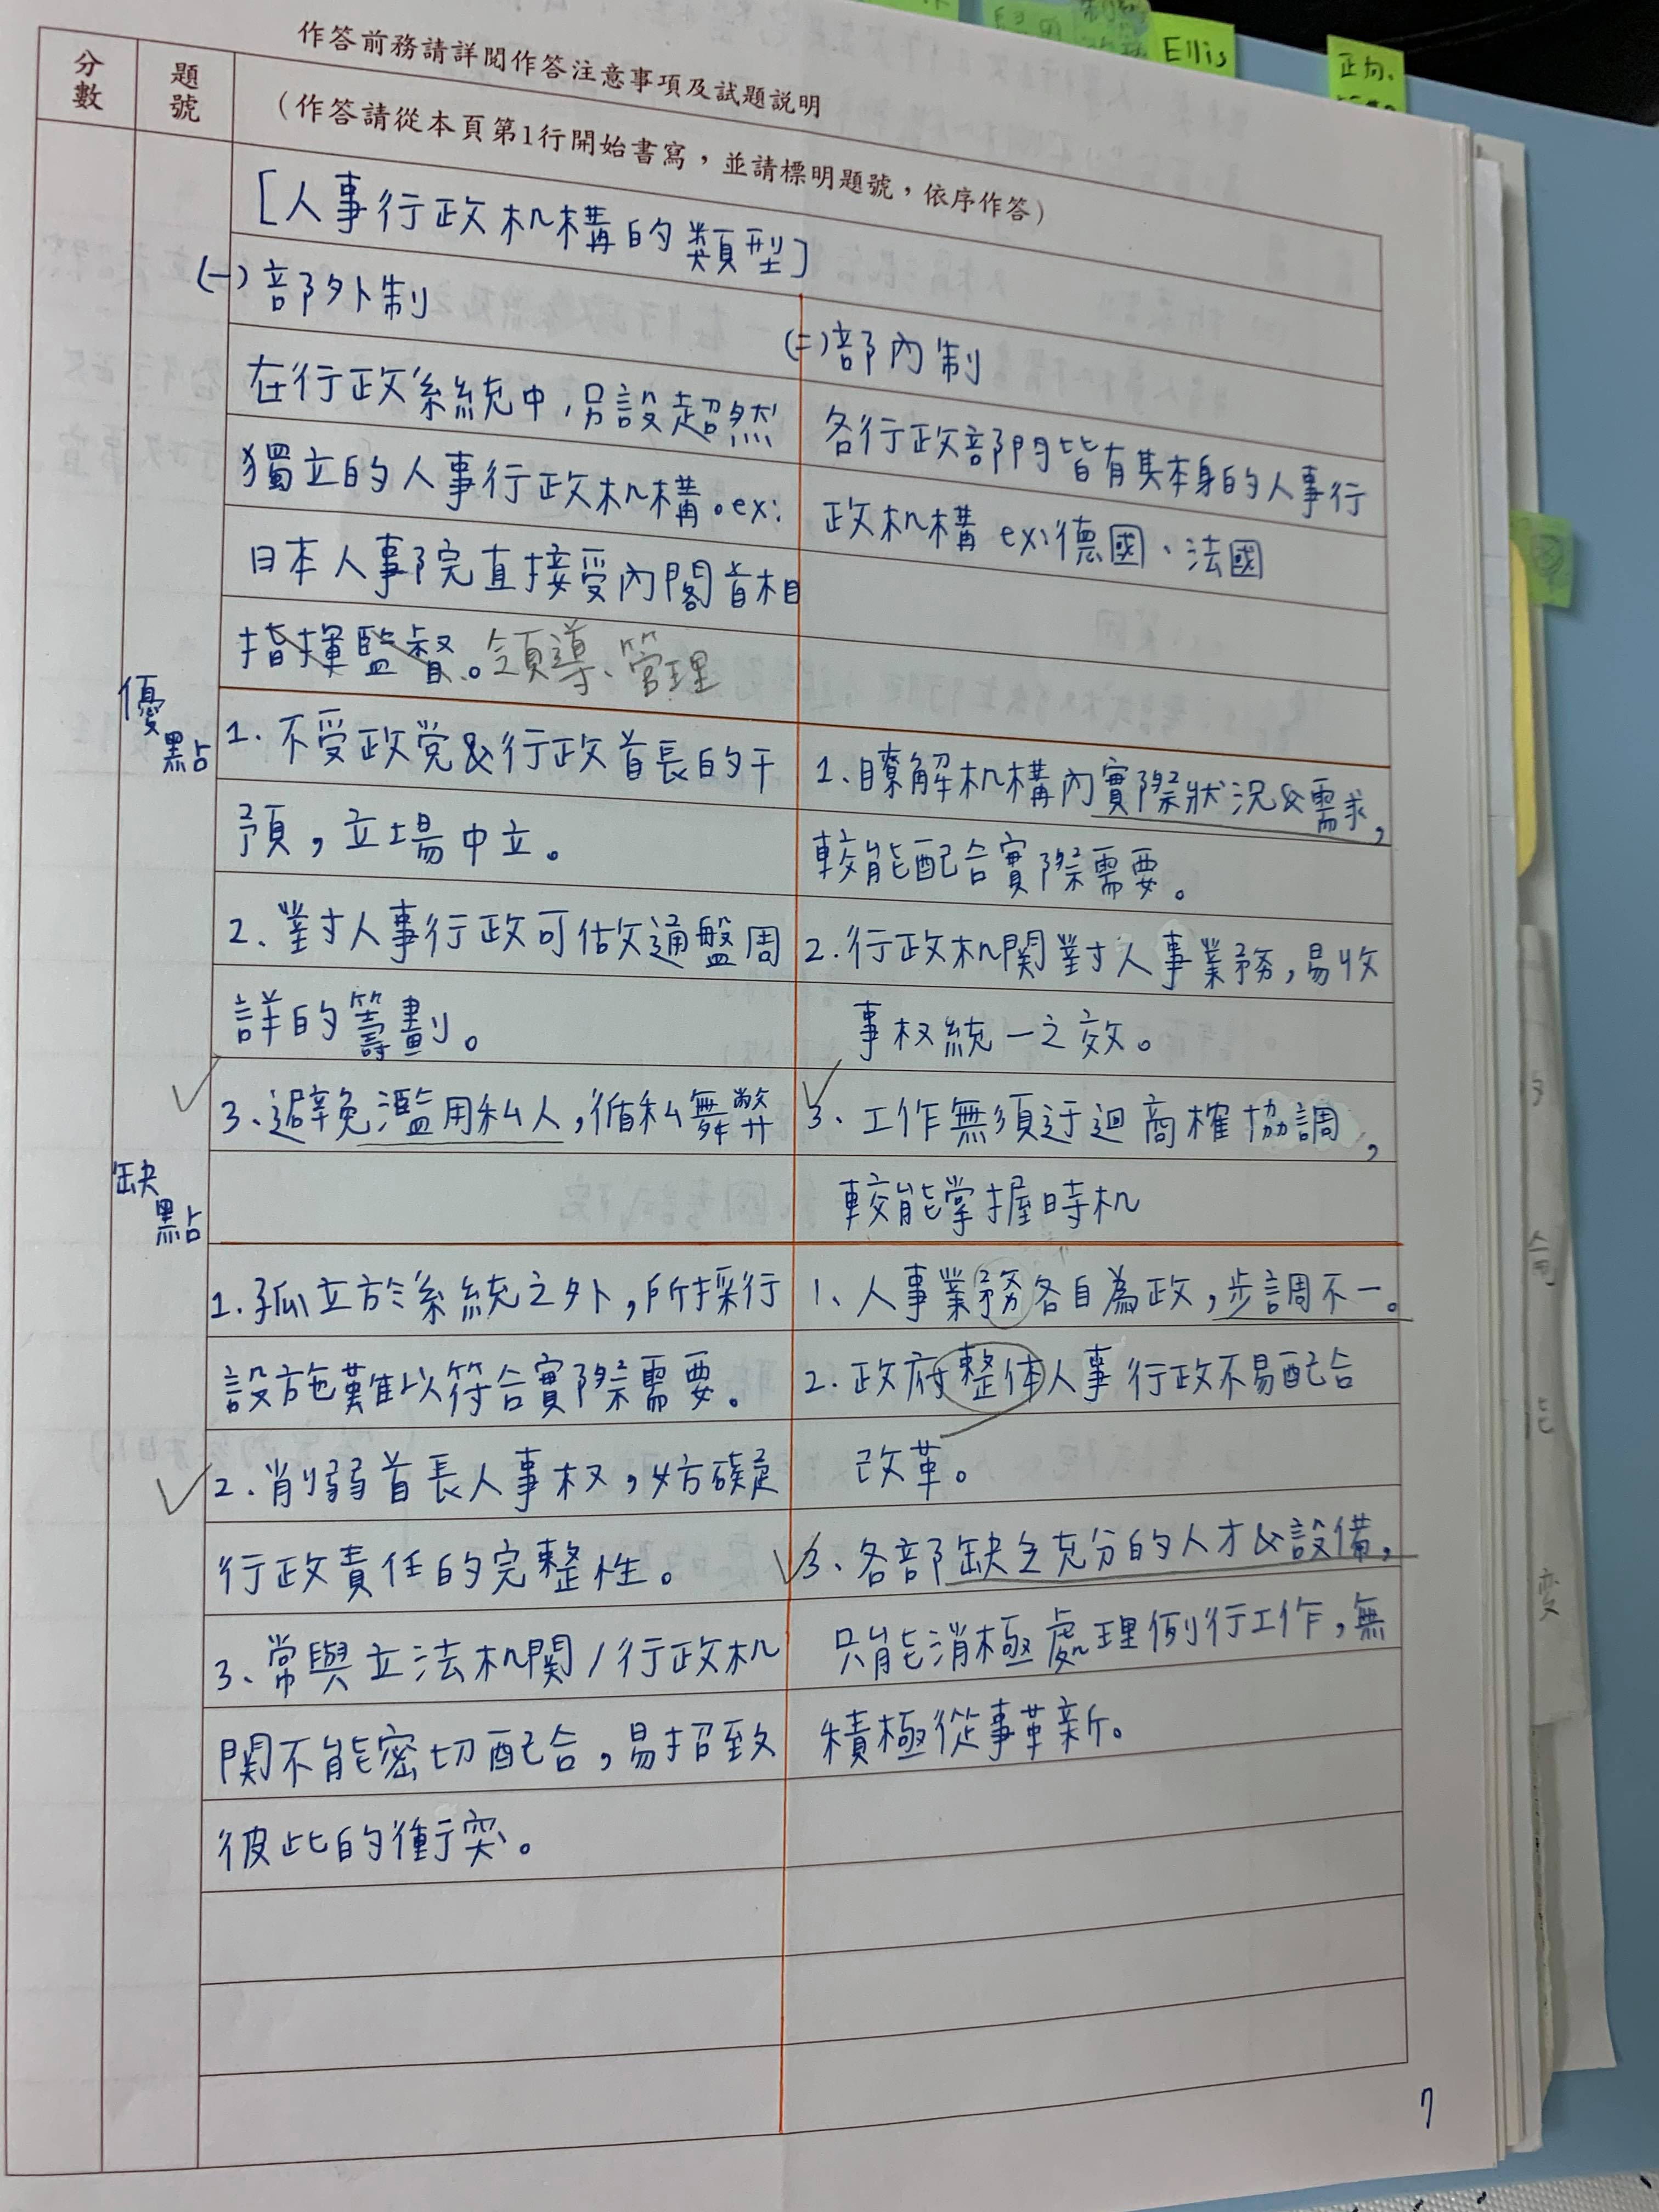 Ellis
分數
題號
作答前務請詳閱作答注意事項及試題説明
（作答請從本頁第1行開始書寫，並請標明題號，依序作答）
[人事行政机構的類型]
(一)部外制
在行政系統中，另設超然
獨立的人事行政机構。ex:
日本人事院直接受內閣首相
指揮監督。領導、管理
(二)部內制
各行政部門皆有其本身的人事行
政机構 ex:德國、法國
優點
1. 不受政党&行政首長的干
預，立場中立。
2. 對人事行政可做通盤周
詳的籌劃。
3、避免濫用私人，循私舞弊
1、瞭解机構內實際狀況&需求，
較能配合實際需要。
2. 行政机関對人事業務，易收
事权統一之效。
3、工作無須迂迴商榷協調，
較能掌握時机
缺點
1. 孤立於系統之外，所採行
設施難以符合實際需要。
2. 削弱首長人事权，妨礙
行政責任的完整性。
3、常與立法机関/行政机
関不能密切配合，易招致
彼此的衝突。
1、人事業務各自為政，步調不一。
2. 政府整体人事行政不易配合
改革。
3、各部缺乏充分的人才&設備，
只能消極處理例行工作，無
積極從事革新。
7